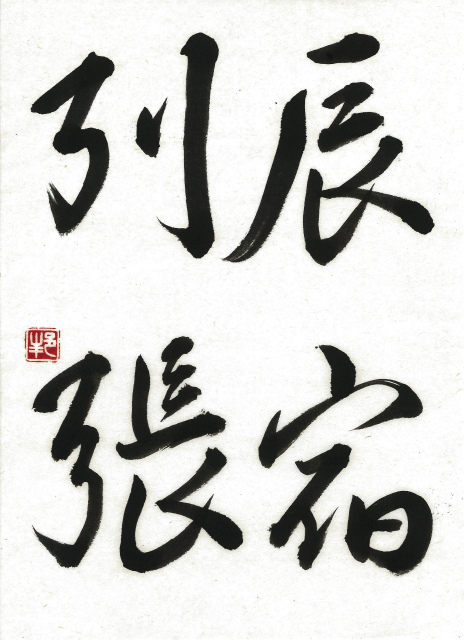 辰宿
列張